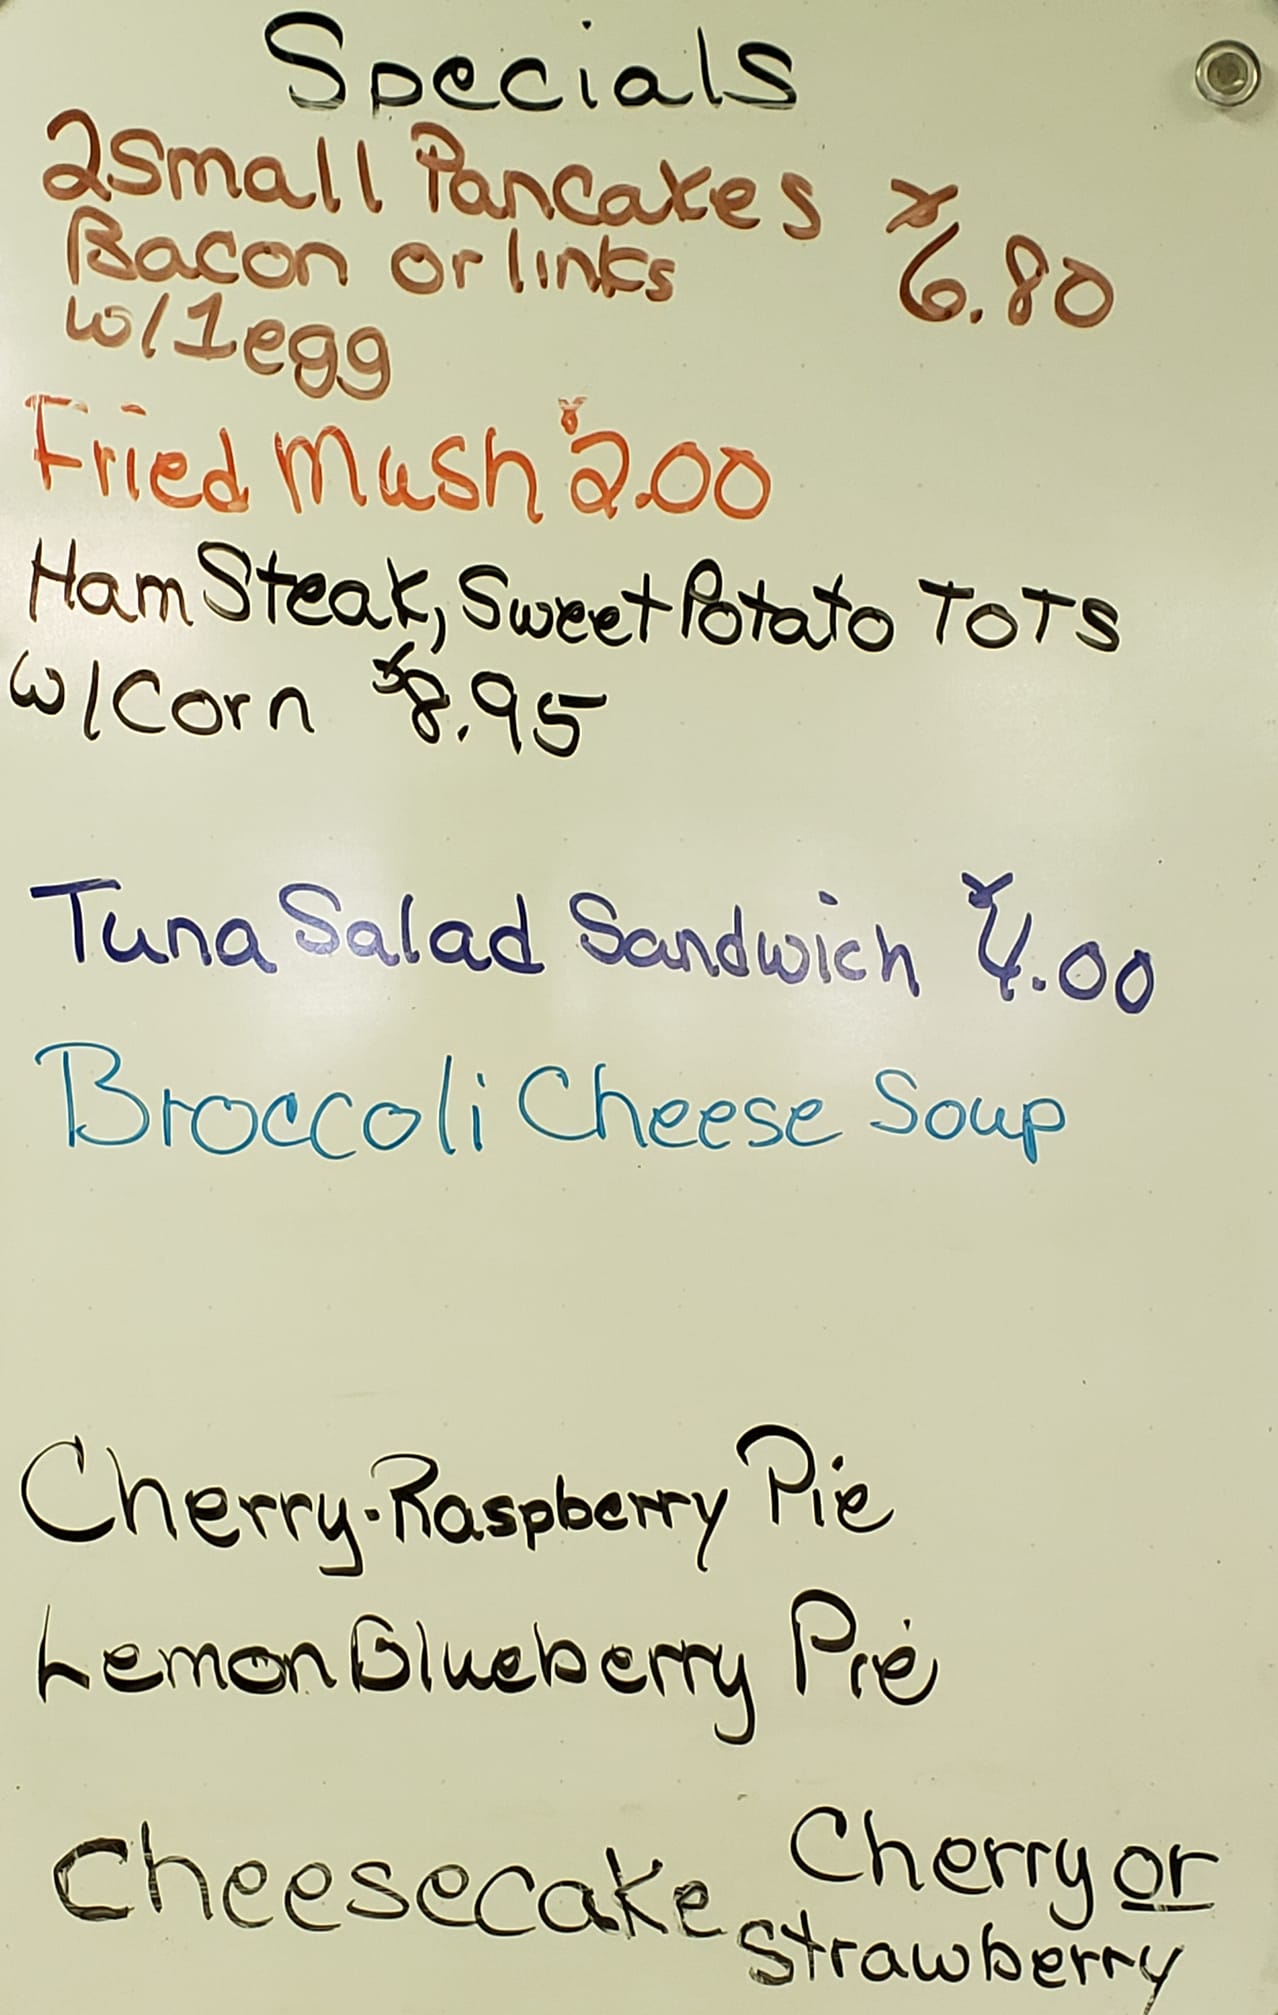 Specials
2 Small Pancakes $6.80
Bacon or links
w/1 egg
Fried Mush $2.00
Ham Steak, Sweet Potato TOTS
w/Corn $8.95
Tuna Salad Sandwich $4.00
Broccoli Cheese Soup
Cherry-Raspberry Pie
Lemon Blueberry Pie
Cheesecake Cherry or
Strawberry